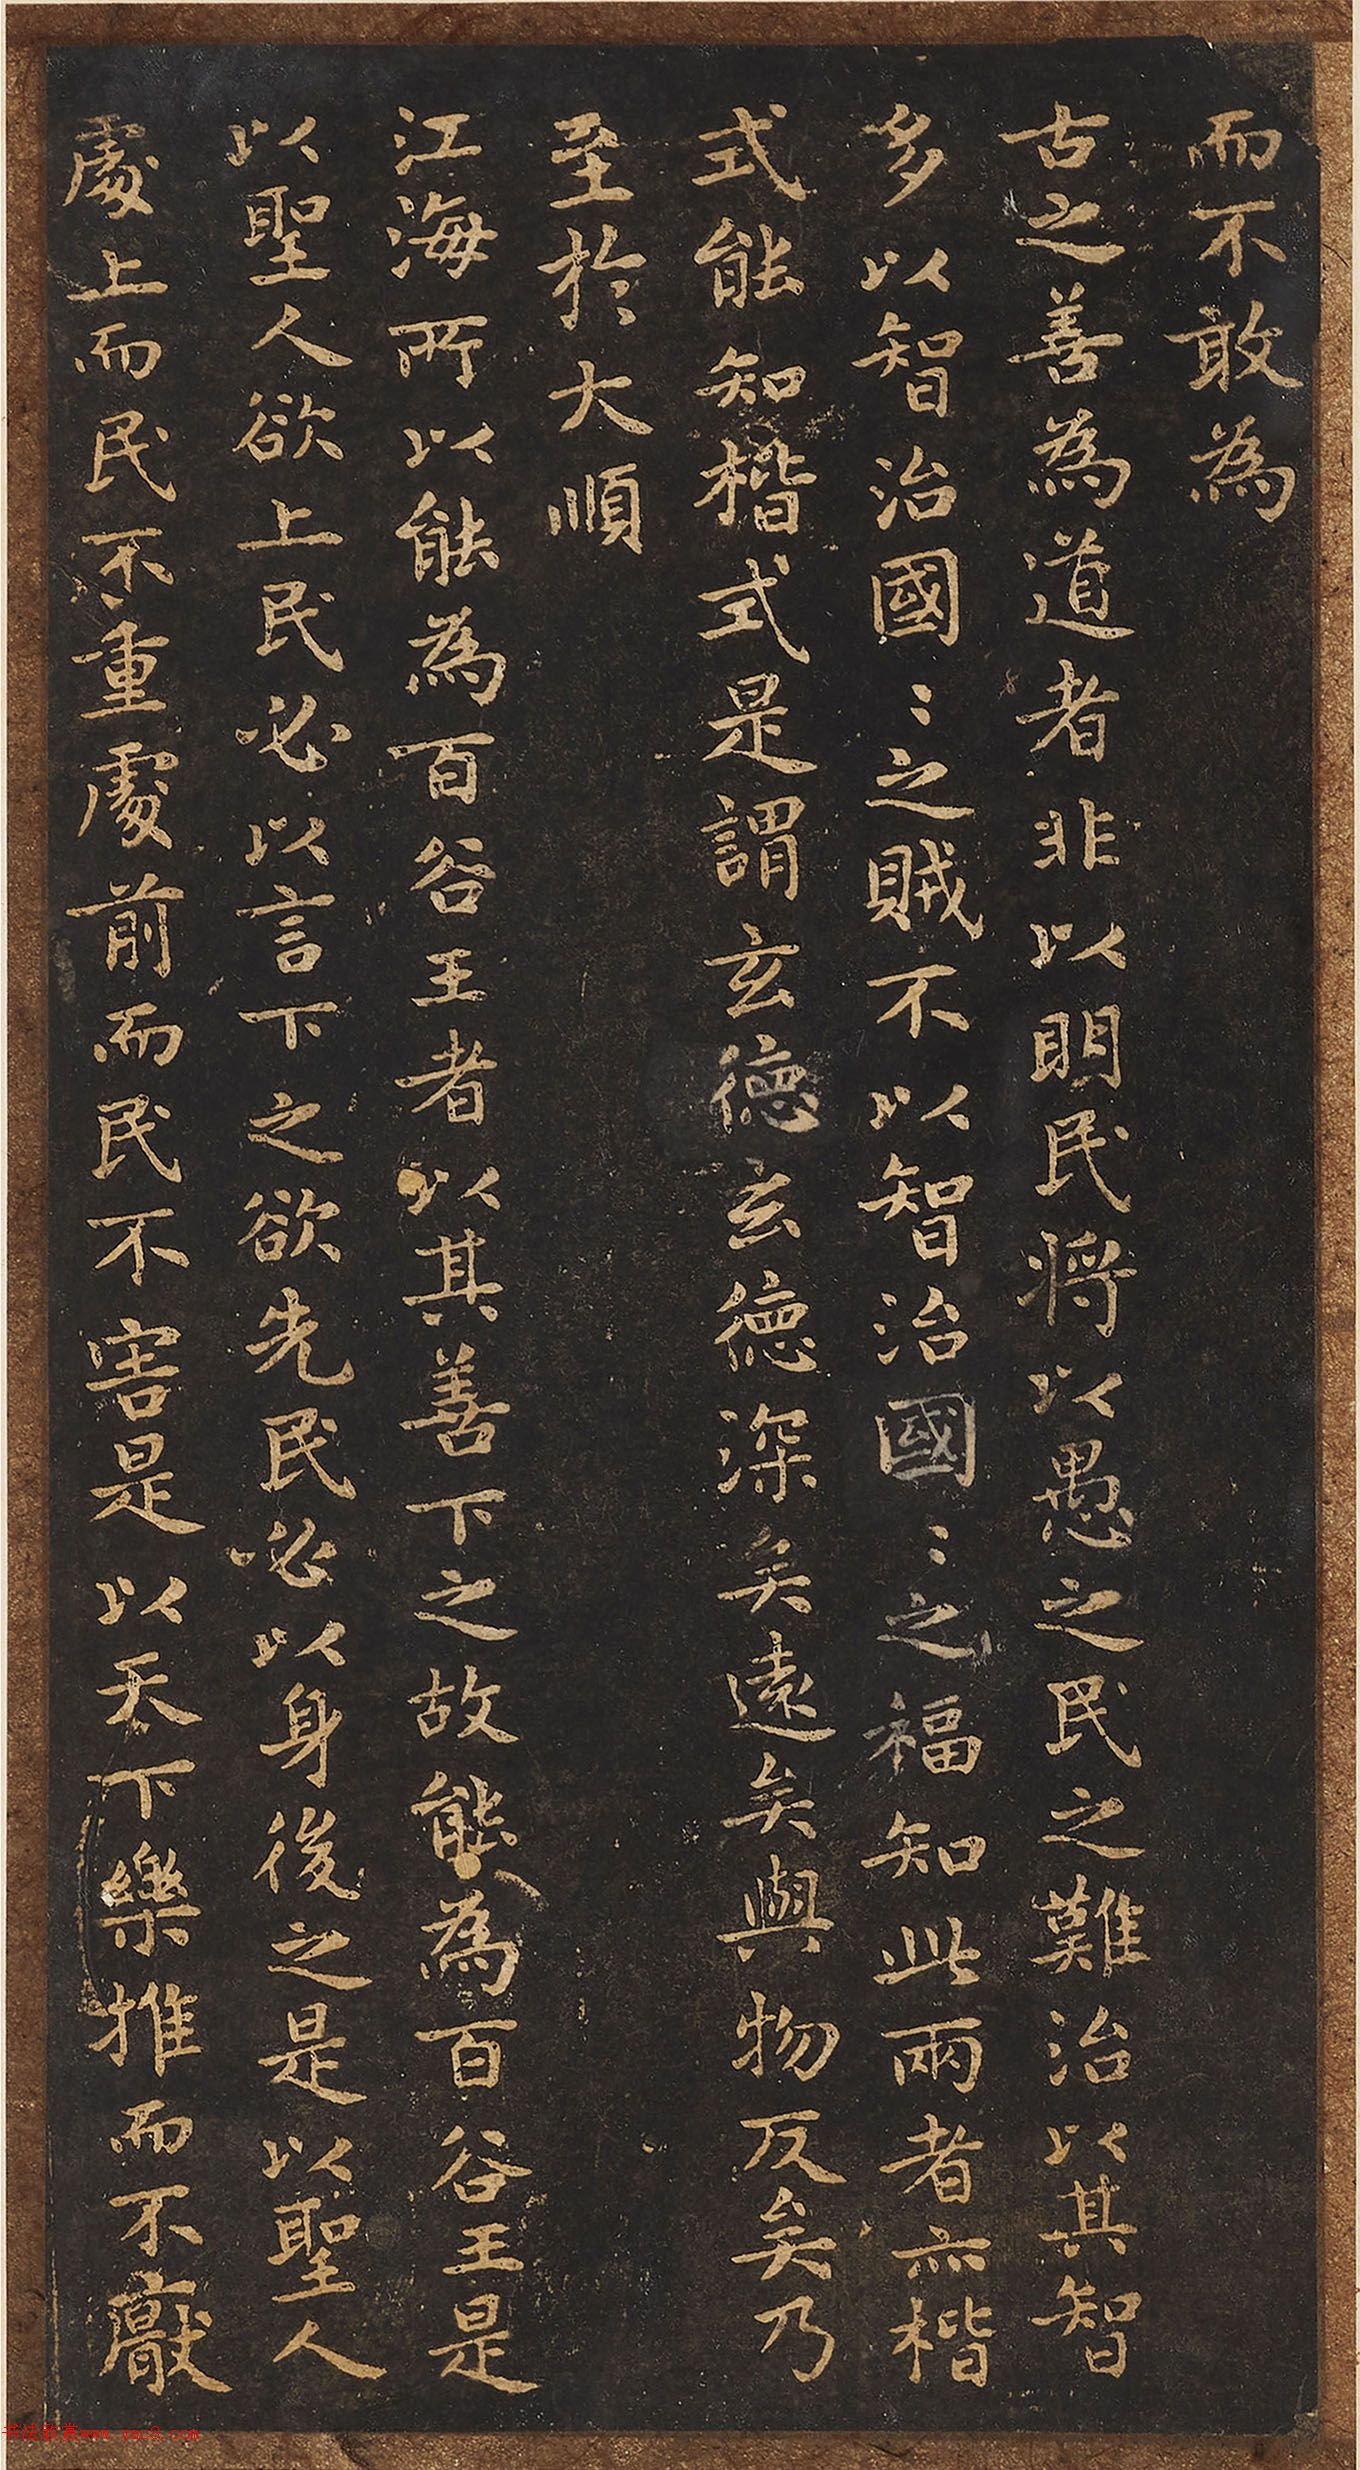 而不敢為
古之善為道者非以明民将以愚之民之難治以其智
多以智治國〻之賊不以智治國〻之福知此兩者亦楷
式能知楷式是謂玄德玄德深矣遠矣與物反矣乃
至於大順
江海所以能為百谷王者以其善下之故能為百谷王是
以聖人欲上民必以言下之欲先民必以身後之是以聖人
處上而民不重處前而民不害是以天下樂推而不厭
书法欣赏www.yac8.com